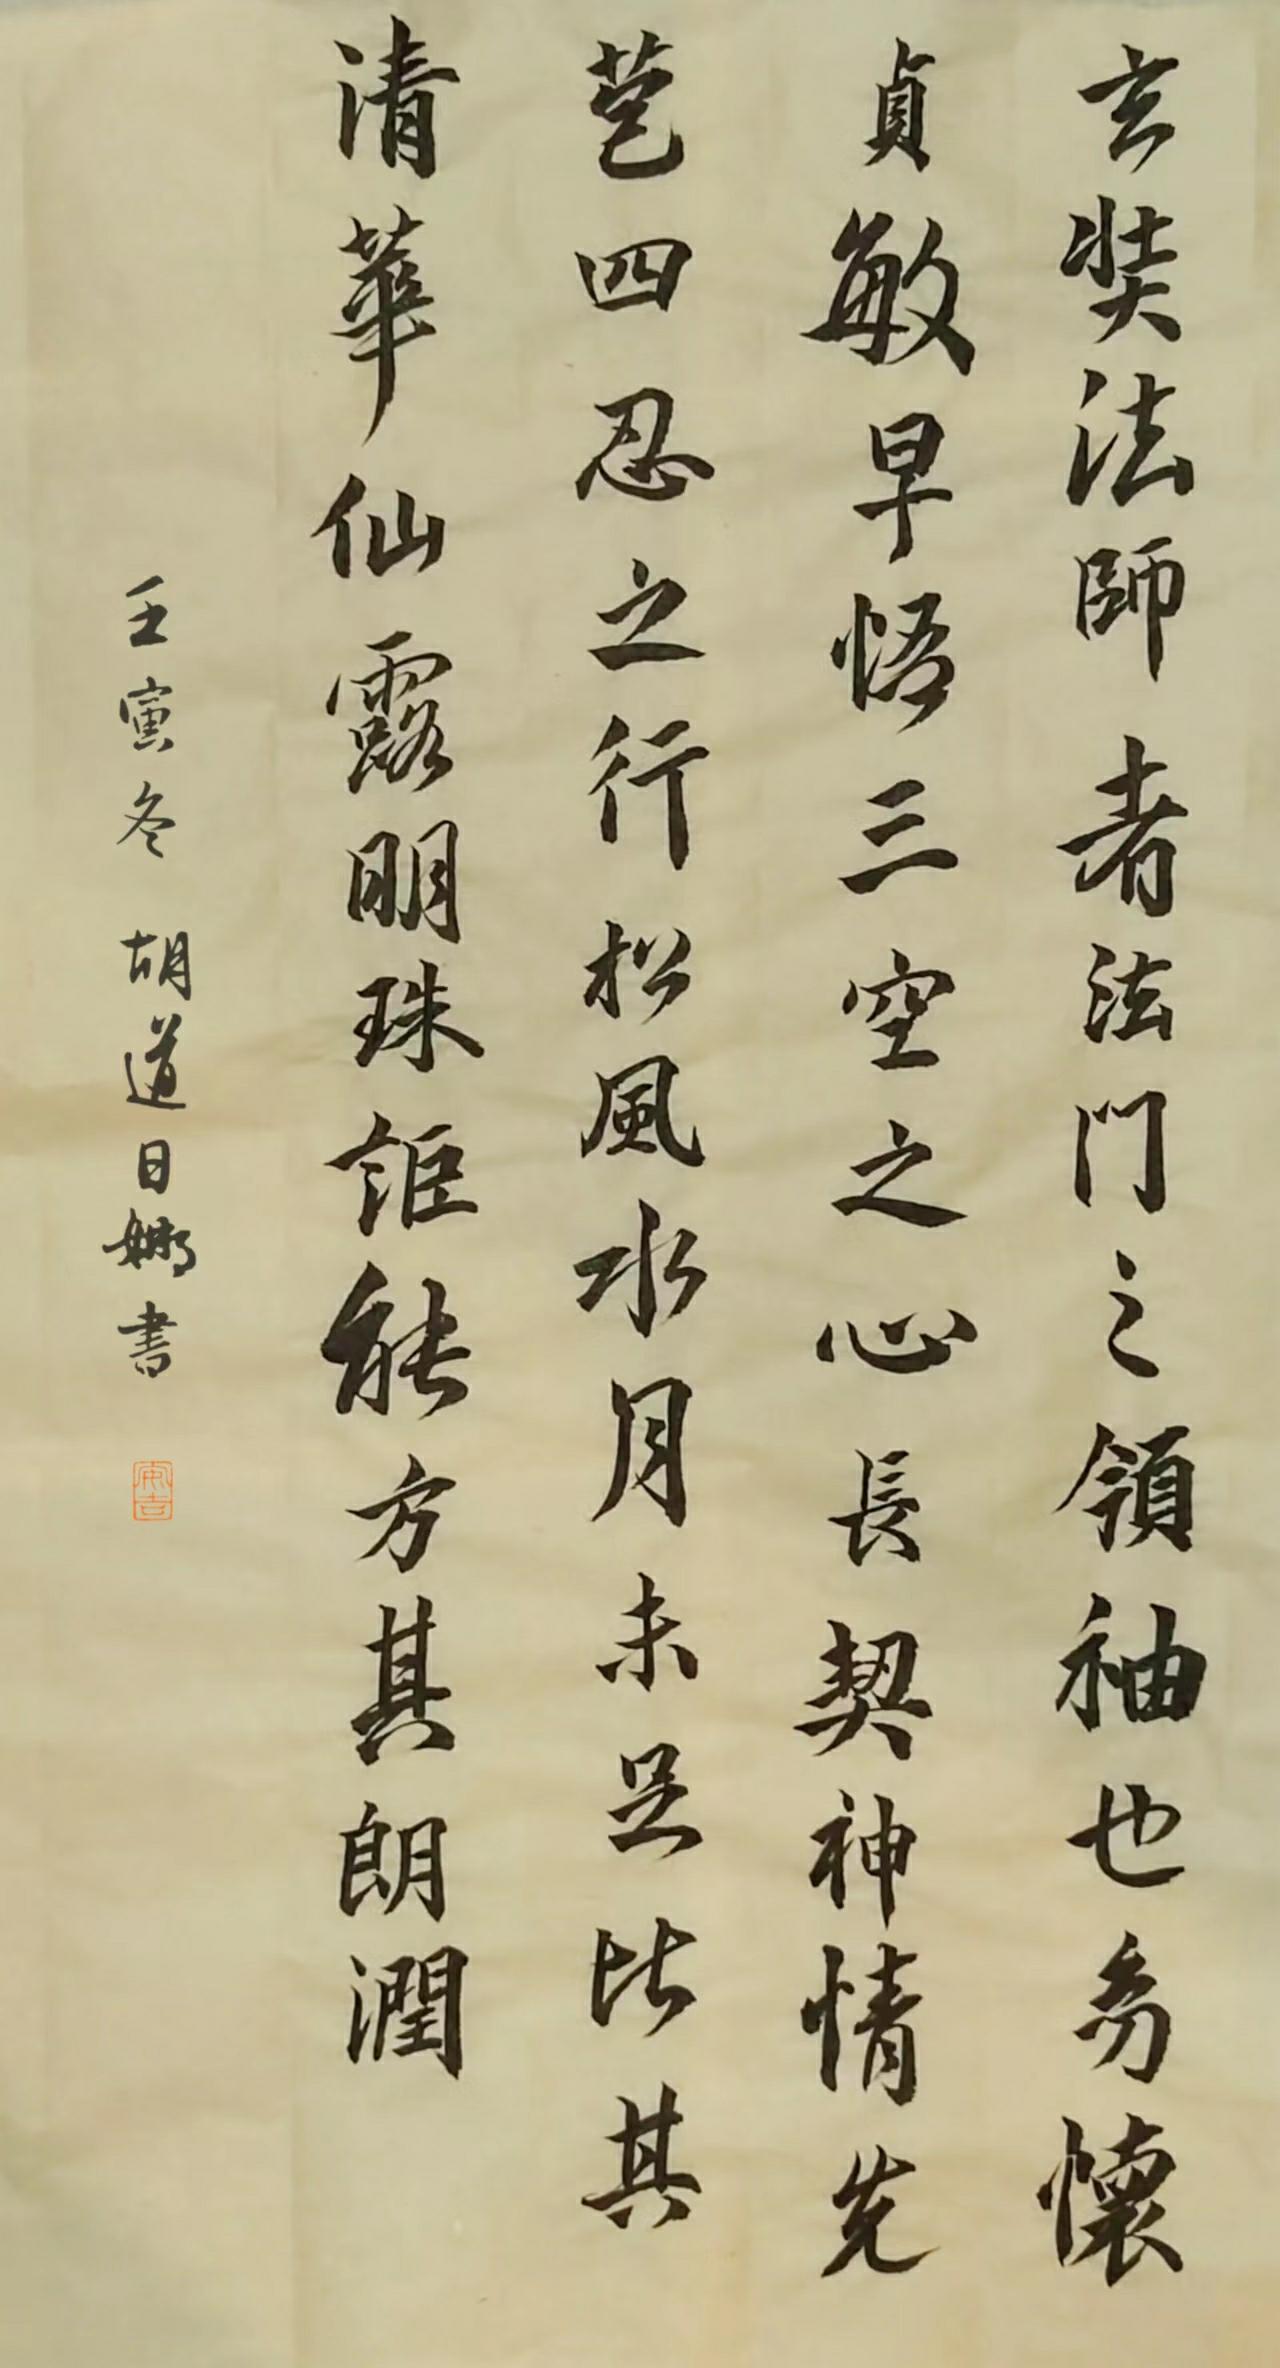 玄奘法師者法門之領袖也㓜懷
貞敏早悟三空之心長契神情先
苞四忍之行松風水月未足比其
清華仙露明珠詎能方其朗潤
壬寅冬胡道日娜書
安吉